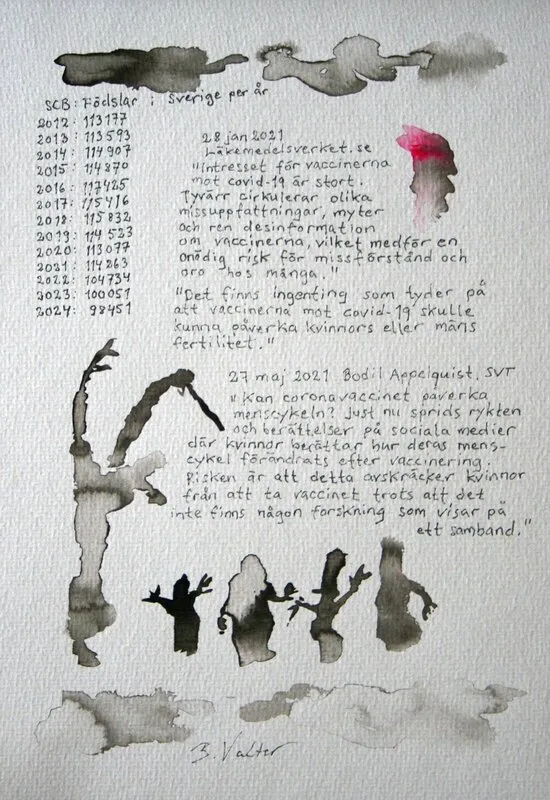 SCB: Födslar i Sverige per år
2012: 113177
2013: 113593
2014: 114907
2015: 114870
2016: 117425
2017: 115416
2018: 115832
2019: 114523
2020: 113077
2021: 114263
2022: 104734
2023: 100051
2024: 98451
28 jan 2021
Läkemedelsverket.se
"Intresset för vaccinerna
mot covid-19 är stort.
Tyvärr cirkulerar olika
missuppfattningar, myter
och ren desinformation
om vaccinerna, vilket medför en
onödig risk för missförstånd och
oro hos många."
"Det finns ingenting som tyder på
att vaccinerna mot covid-19 skulle
kunna påverka kvinnors eller mäns
fertilitet."
27 maj 2021 Bodil Appelquist, SVT
"Kan coronavaccinet påverka
menscykeln? Just nu sprids rykten
och berättelser på sociala medier
där kvinnor berättar hur deras mens-
cykel förändrats efter vaccinering.
Risken är att detta avskräcker kvinnor
från att ta vaccinet trots att det
inte finns någon forskning som visar på
ett samband."
B. Valter